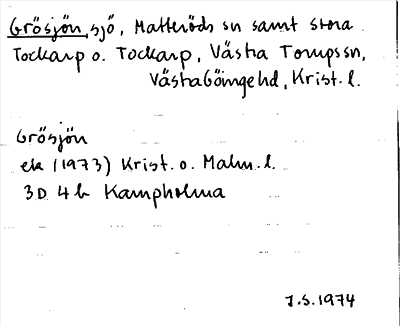 Grösjön, sjö, Matteröds sn samt Stora
Tockarp o. Tockarp, Västra Torups sn,
Västra Göinge hd, Krist. l.
Grösjön
ek (1973) Krist. o. Malm. l.
3D 4h Kampholma
J.S. 1974